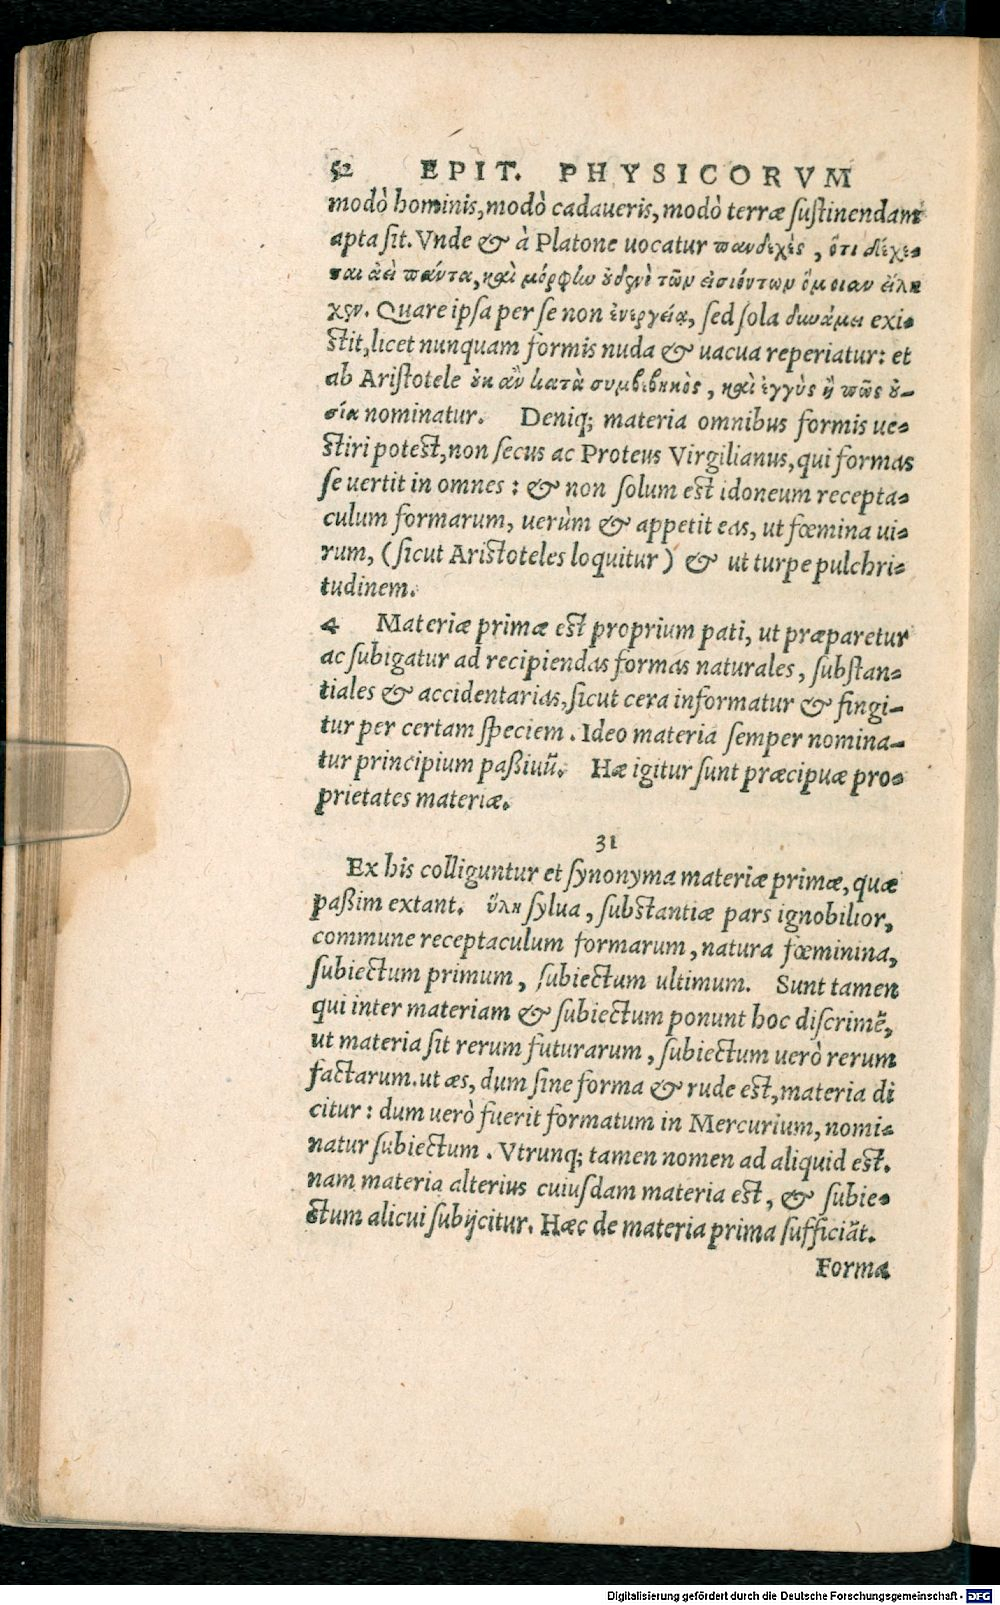 52 EPIT. PHYSICORVM
modò hominis, modò cadaueris, modò terræ ſuſtinendam
apta ſit. Vnde & à Platone uocatur πανδεχὲς, ὅτι δέχε-
ται ἀεὶ πάντα, καὶ μόρφην οὐδενὶ τῶν εἰσιόντων ὅμοιαν εἴλη
χεν. Quare ipſa per ſe non ἐνεργείᾳ, ſed ſola δυνάμει exi-
ſtit, licet nunquam formis nuda & uacua reperiatur: et
ab Ariſtotele οὐκ ἂν κατὰ συμβεβηκὸς, καὶ ἐγγὺς ἢ πῶς οὐ-
σία nominatur. Deniq; materia omnibus formis ue-
ſtiri poteſt, non ſecus ac Proteus Virgilianus, qui formas
ſe uertit in omnes: & non ſolum eſt idoneum recepta-
culum formarum, uerùm & appetit eas, ut fœmina ui-
rum, (ſicut Ariſtoteles loquitur) & ut turpe pulchri-
tudinem.
4 Materiæ primæ eſt proprium pati, ut præparetur
ac ſubigatur ad recipiendas formas naturales, ſubſtan-
tiales & accidentarias, ſicut cera informatur & fingi-
tur per certam ſpeciem. Ideo materia ſemper nomina-
tur principium paßiuũ. Hæ igitur ſunt præcipuæ pro-
prietates materiæ.
31
Ex his colliguntur et ſynonyma materiæ primæ, quæ
paßim extant. ὕλη ſylua, ſubſtantiæ pars ignobilior,
commune receptaculum formarum, natura fœminina,
ſubiectum primum, ſubiectum ultimum. Sunt tamen
qui inter materiam & ſubiectum ponunt hoc diſcrimẽ,
ut materia ſit rerum futurarum, ſubiectum uerò rerum
factarum. ut æs, dum ſine forma & rude eſt, materia di
citur: dum uerò fuerit formatum in Mercurium, nomi-
natur ſubiectum. Vtrunq; tamen nomen ad aliquid eſt.
nam materia alterius cuiuſdam materia eſt, & ſubie-
ctum alicui ſubijcitur. Hæc de materia prima ſufficiãt.
Forma
Digitalisierung gefördert durch die Deutsche Forschungsgemeinschaft - DFG